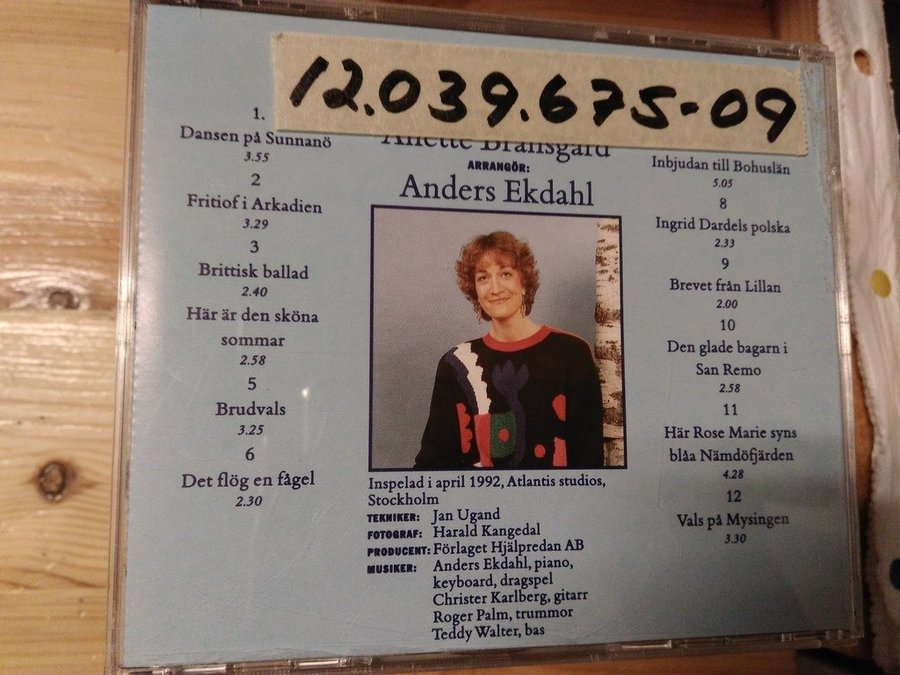 12.039.675-09
1.
Dansen på Sunnanö
3.55
2
Fritiof i Arkadien
3.29
3
Brittisk ballad
2.40
Här är den sköna
sommar
2.58
5
Brudvals
3.25
6
Det flög en fågel
2.30
Anette Bränsgård
ARRANGÖR:
Anders Ekdahl
Inspelad i april 1992, Atlantis studios,
Stockholm
TEKNIKER: Jan Ugand
FOTOGRAF: Harald Kangedal
PRODUCENT: Förlaget Hjälpredan AB
MUSIKER: Anders Ekdahl, piano,
keyboard, dragspel
Christer Karlberg, gitarr
Roger Palm, trummor
Teddy Walter, bas
Inbjudan till Bohuslän
5.05
8
Ingrid Dardels polska
2.33
9
Brevet från Lillan
2.00
10
Den glade bagarn i
San Remo
2.58
11
Här Rose Marie syns
blåa Nämdöfjärden
4.28
12
Vals på Mysingen
3.30